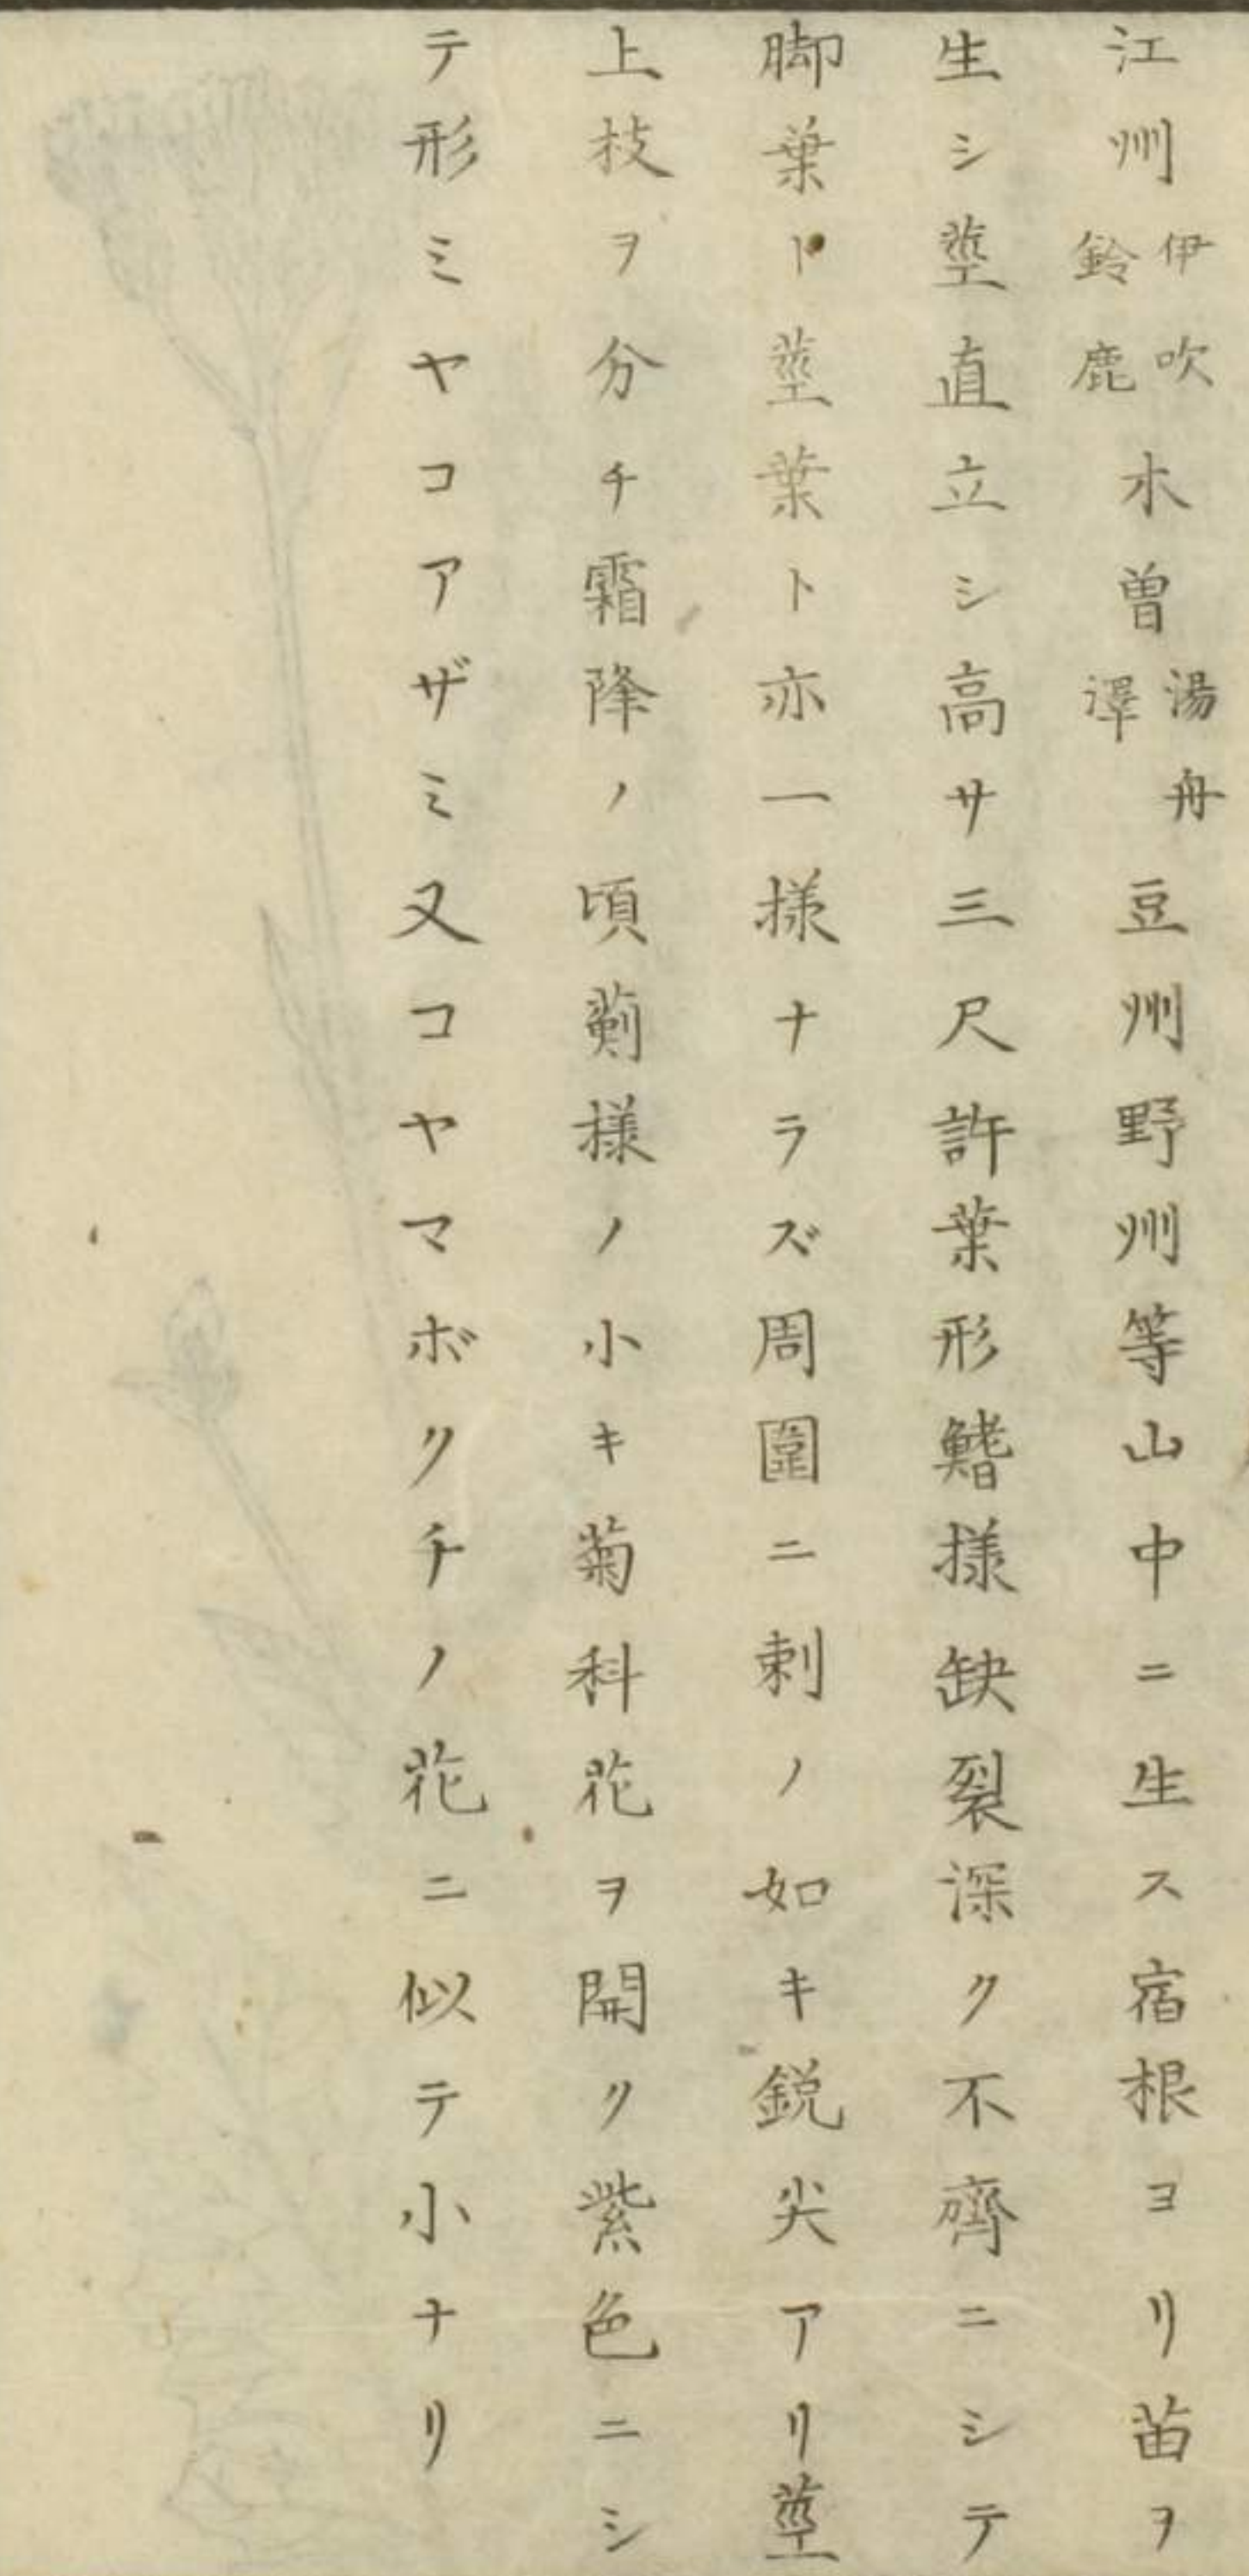 江州伊吹鈴鹿木曽湯舟澤豆州野州等山中ニ生ス宿根ヨリ苗ヲ
生シ莖直立シ高サ三尺許葉形鰭様缺裂深ク不齊ニシテ
脚葉ト莖葉ト亦一様ナラズ周圍ニ刺ノ如キ鋭尖アリ莖
上枝ヲ分チ霜降ノ頃薊様ノ小キ菊科花ヲ開ク紫色ニシ
テ形ミヤコアザミ又コヤマボクチノ花ニ似テ小ナリ